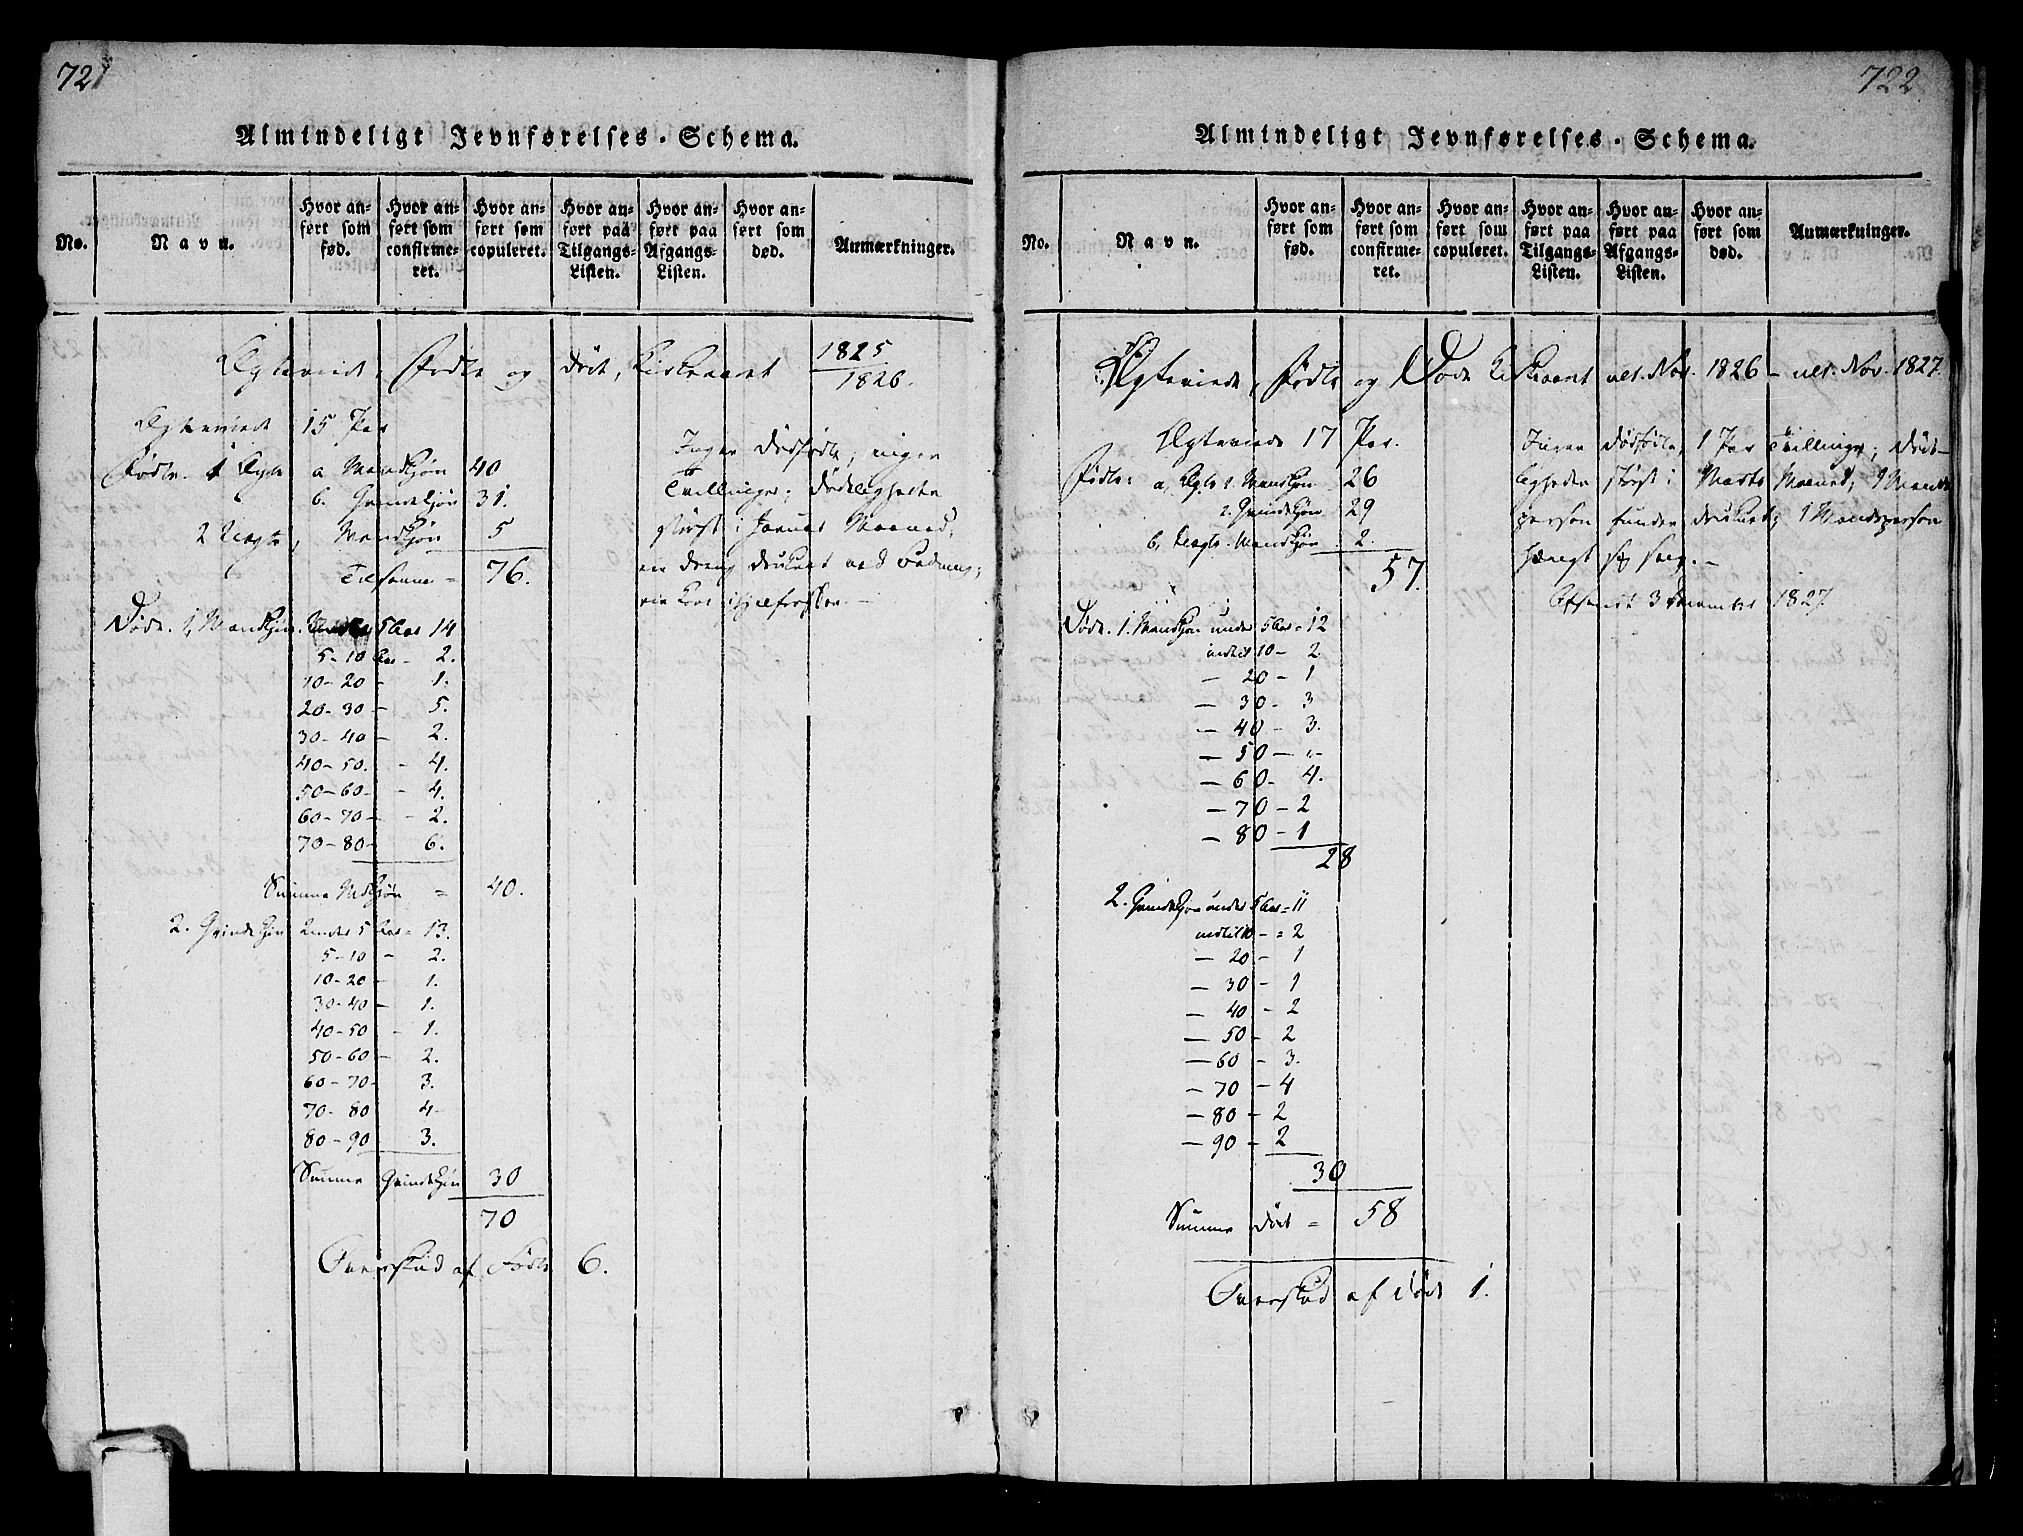 721
Almindeligt Jevnførelses-Schema.
No. Navn. Hvor anført som fød. Hvor anført som confirmeret. Hvor anført som copuleret. Hvor anført paa Tilgangs-Listen. Hvor anført paa Afgangs-Listen. Hvor anført som død. Anmærkninger.
Egteviede, Fødte og Døde, Kirkeaaret 1825
1826.
Egteviede 15 Par
Fødte. 1 Egte a Mandkjøn 40
b. Qvindekjøn 31.
2 Uegte, Mandkjøn 5
Tilsamme = 76.
Ingen Dødfødte; ingen
Tvillinger; Dødeligheden
størst i Januar Maaned,
en dreng druknet
ihjelfrossen.
Døde. 1, Mandkjøn. Under 5 Aar 14
5-10 Aar - 2.
10-20 - 1.
20-30 - 5.
30-40 - 2.
40-50. - 4.
50-60 - 4.
60-70 - 2.
70-80 - 6.
Summa Mdkjøn = 40.
2. Qvindekjøn Under 5 Aar = 13.
5-10 - 2.
10-20 - 1.
30-40 - 1.
40-50 - 1.
50-60 - 2.
60-70 - 3.
70-80 4
80-90 - 3.
Summa Qvindekjøn 30
70
Overskud af Fødte 6.
722
Almindeligt Jevnførelses-Schema.
No. Navn. Hvor anført som fød. Hvor anført som confirmeret. Hvor anført som copuleret. Hvor anført paa Tilgangs-Listen. Hvor anført paa Afgangs-Listen. Hvor anført som død. Anmærkninger.
Egteviede, Fødte og Døde Kirkeaaret ult. Nov. 1826 - ult. Nov. 1827.
Egteviede 17 Par.
Fødte: a, Egte 1. Mandkjøn 26
2. Qvindekjøn 29
b, Uegte. Mandkjøn 2.
57.
Ingen dødfødte, 1 Par Tvillinger; Død-
ligheden størst i Marts Maaned; 1 Mands
person funden druknet; 1 Mandsperson
hængt sig selv. -
Afsendt 3 December 1827.
Døde. 1. Mandkjøn under 5 Aar = 12
indtil 10 - 2
- 20 - 1
- 30 - 3
- 40 - 3.
- 50 - "
- 60 - 4.
- 70 - 2
- 80 - 1
28
2. Qvindekjøn under 5 Aar = 11
indtil 10 - = 2
- 20 - 1
- 30 - 1
- 40 - 2
- 50 - 2
- 60 - 3.
- 70 - 4
- 80 - 2
- 90 - 2
30
Summa døde = 58
Overskud af døde 1.